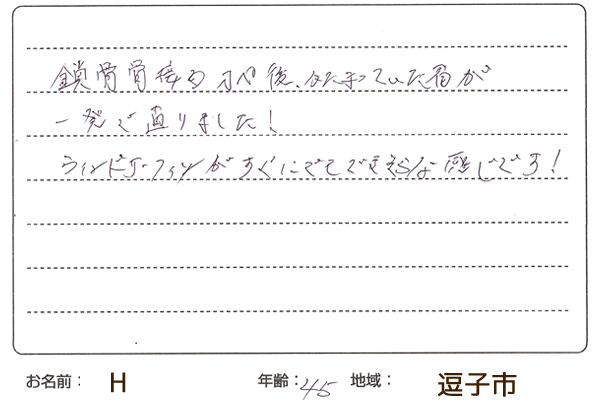 鎖骨骨接のオペ後、かたまっていた肩が
一発で直りました！
ウィンドサーフィンがすぐにでもできそうな感じです！
お名前： H 年齢：45 地域： 逗子市